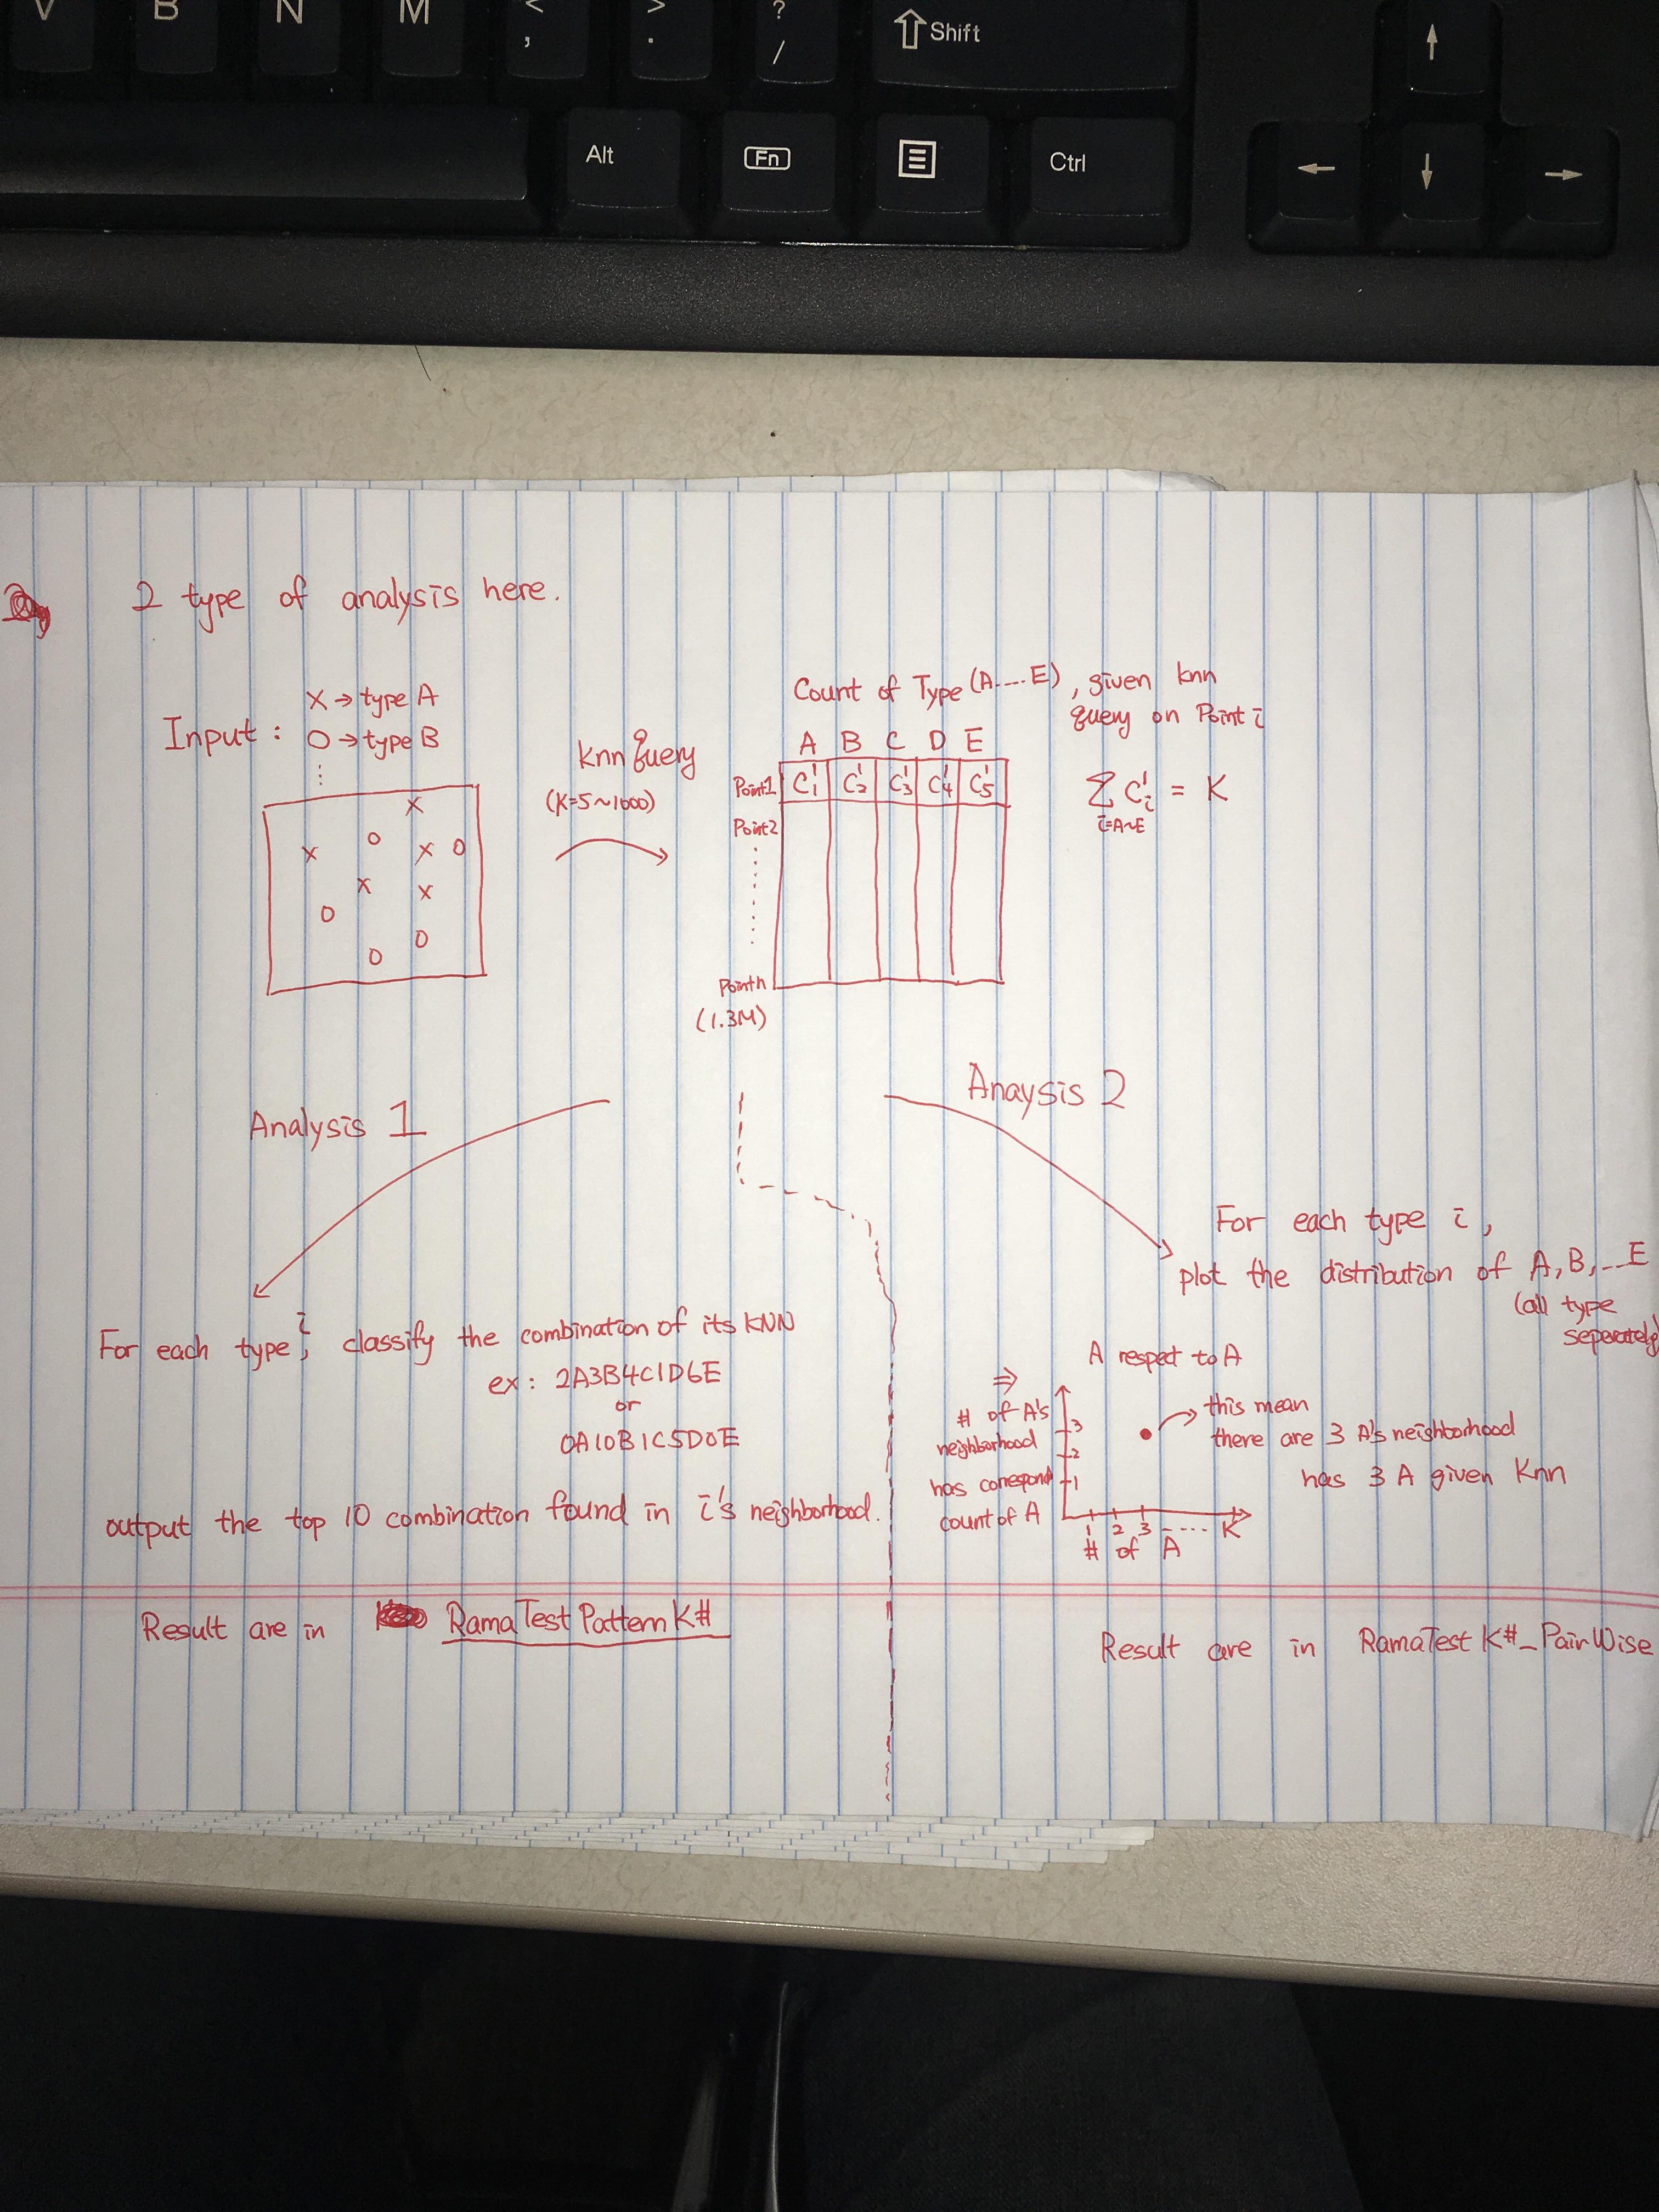 V B N M < , > . ? / Shift
Alt Fn Ctrl
2 type of analysis here.
Input :
X → type A
O → type B
knn Query
(K=5~1000)
Count of Type (A....E), given knn
query on Point i
A B C D E
Point1 C₁¹ C₂¹ C₃¹ C₄¹ C₅¹
Point2
Point n
(1.3M)
Σ Cᵢ¹ = K
i=A~E
Analysis 1
For each type i, classify the combination of its KNN
ex: 2A3B4C1D6E
or
0A10B1C5D0E
output the top 10 combination found in i's neighborhood.
Result are in RamaTestPatternK#
Anaysis 2
For each type i,
plot the distribution of A,B,...E
(all type
seperately)
⇒
A respect to A
# of A's
neighborhood
has correspond
count of A
3
2
1
1 2 3 ---- K
# of A
this mean
there are 3 A's neighborhood
has 3 A given Knn
Result are in RamaTest K#_PairWise